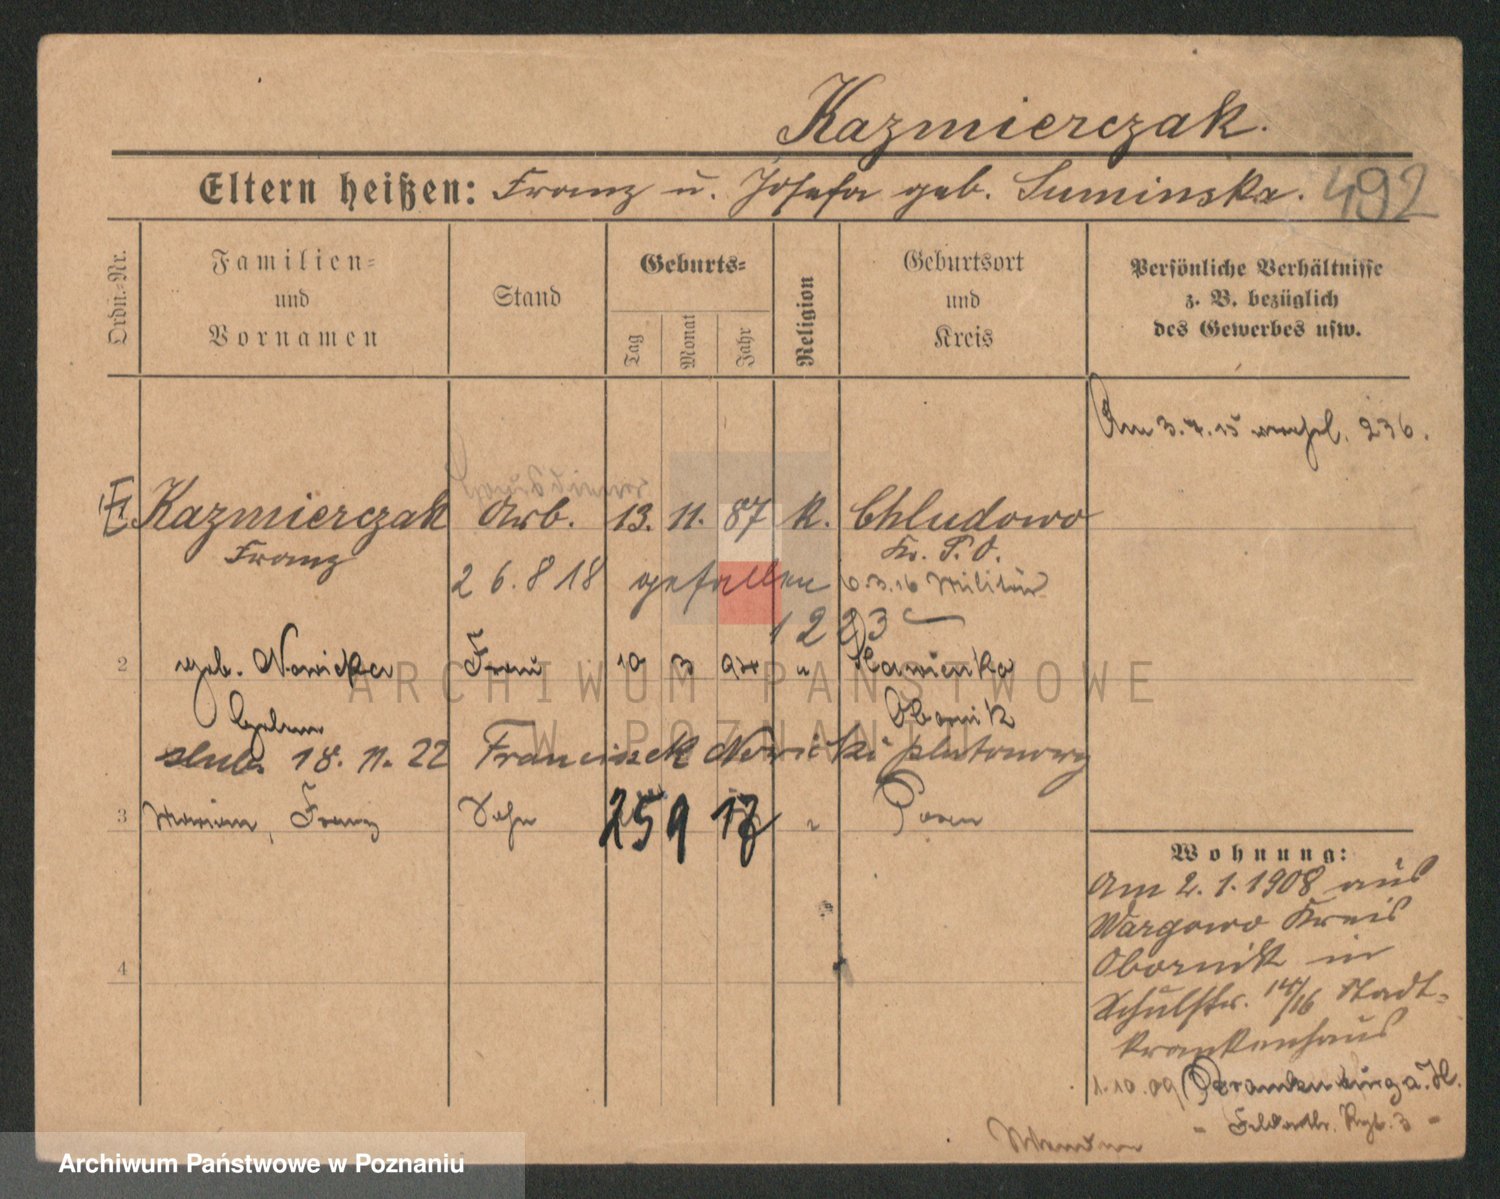 Kazmierczak.
Eltern heißen: Franz u. Josefa geb. Suminska. 492
Ordn.-Nr.
Familien-
und
Vornamen
Stand
Geburts-
Tag
Monat
Jahr
Religion
Geburtsort
und
Kreis
Persönliche Verhältnisse
z. B. bezüglich
des Gewerbes usw.
Am 3.7.15 verehl. 236.
Kazmierczak Arb. 13. 11. 87 K. Chludowo
Franz Kr. P. O.
26.8 18 gefallen 6.3.16 Militär
1223
2 geb. Nowicka Frau 19 3 94 " Slawienko
Obornik
slub. 18. 11. 22 Franciszek Nowicki plutonowy
3 Marian, Franz Sohn 25 9 17 " Posen
4
Wohnung:
Am 2.1.1908 aus
Wargowo Kreis
Obornik in
Schulstr. 14/16 Stadt-
krankenhaus
1.10.09 Brandenburg a. H.
Feldartl. Rgt. 3
ARCHIWUM PAŃSTWOWE
W POZNANIU
Archiwum Państwowe w Poznaniu